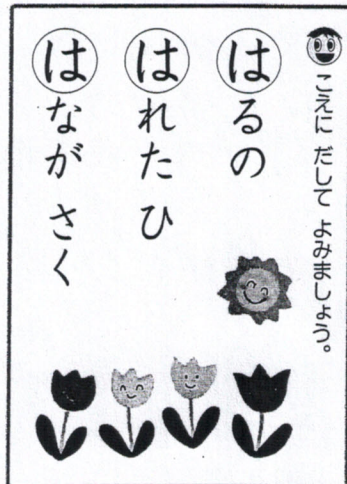 こえに だして よみましょう。
はるの
はれた ひ
はなが さく